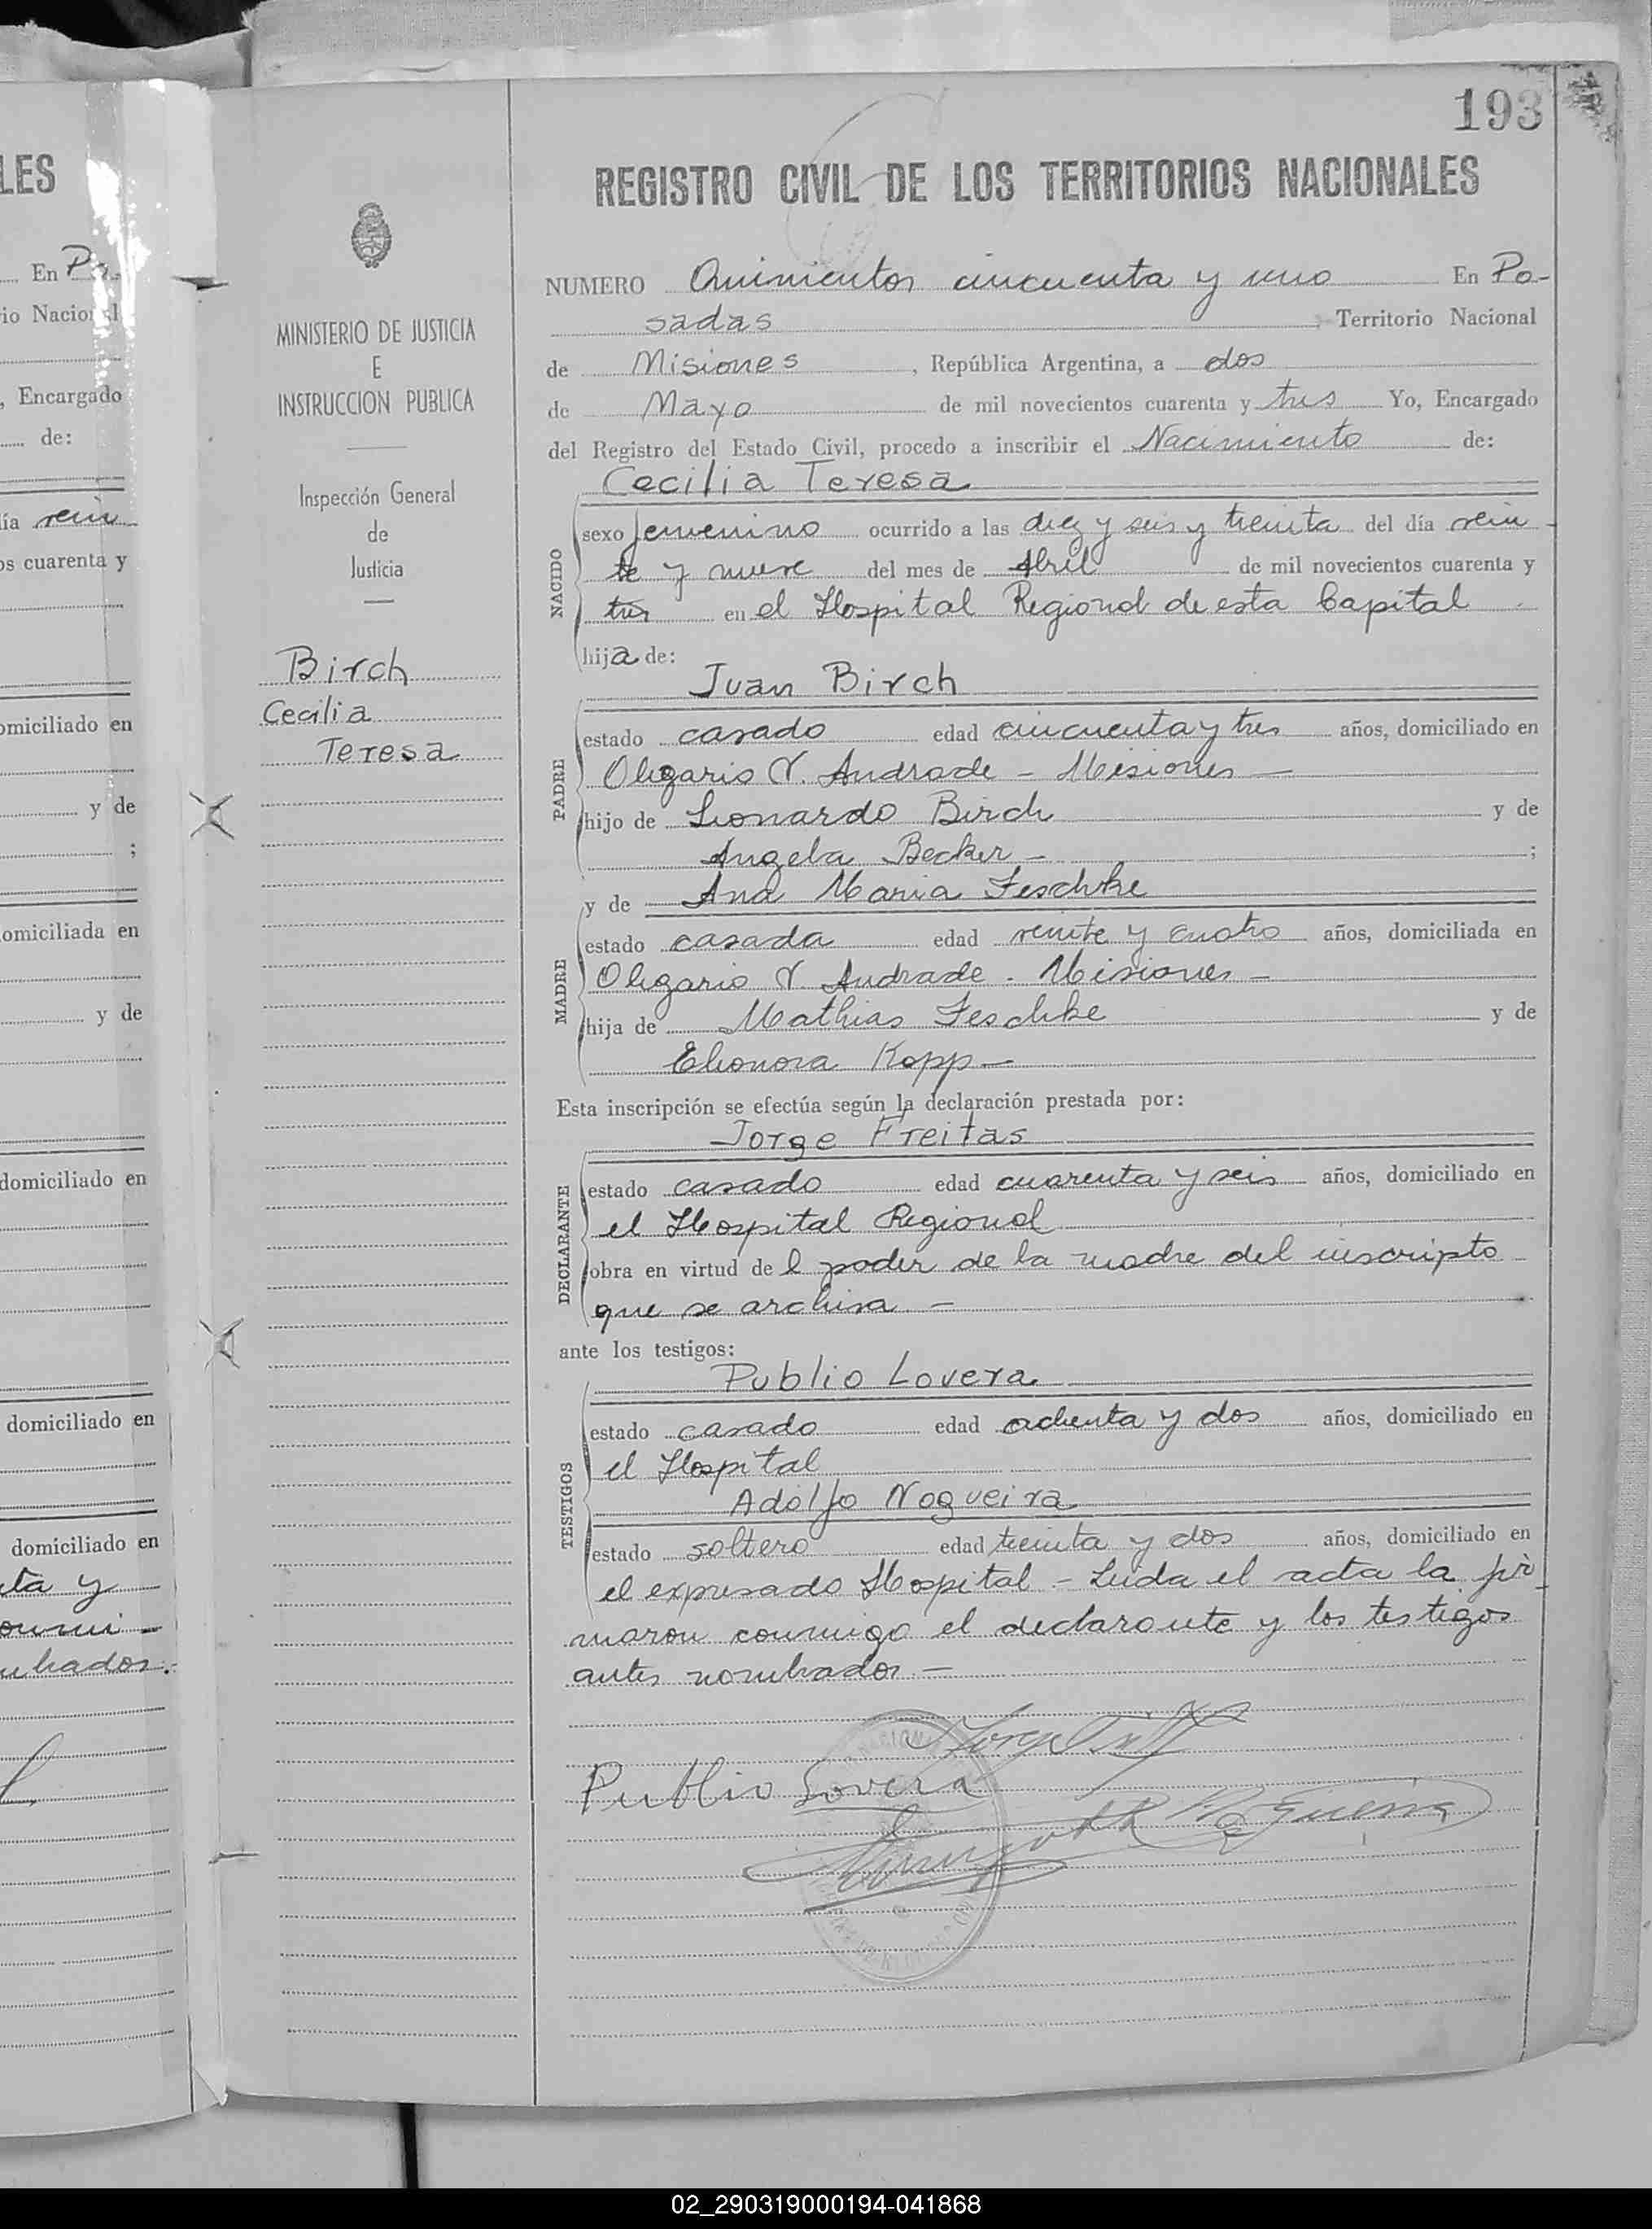 193
LES
REGISTRO CIVIL DE LOS TERRITORIOS NACIONALES
En Po-
io Nacional
, Encargado
de:
ía vein
os cuarenta y
omiciliado en
y de
;
omiciliada en
y de
domiciliado en
domiciliado en
domiciliado en
ta y
MINISTERIO DE JUSTICIA
E
INSTRUCCION PUBLICA
Inspección General
de
Justicia
Birch
Cecilia
Teresa
NUMERO Quinientos cincuenta y uno En Po-
sadas Territorio Nacional
de Misiones, República Argentina, a dos
de Mayo de mil novecientos cuarenta y tres Yo, Encargado
del Registro del Estado Civil, procedo a inscribir el Nacimiento de:
Cecilia Teresa
NACIDO
sexo femenino ocurrido a las diez y seis y treinta del día vein
te y nueve del mes de Abril de mil novecientos cuarenta y
tres en el Hospital Regional de esta Capital
hija de:
Juan Birch
PADRE
estado casado edad cincuenta y tres años, domiciliado en
Olegario V. Andrade - Misiones -
hijo de Leonardo Birch y de
Angela Becker - ;
y de Ana Maria Feschke
MADRE
estado casada edad veinte y cuatro años, domiciliada en
Olegario V. Andrade - Misiones -
hija de Mathias Feschke y de
Eleonora Kopp -
Esta inscripción se efectúa según la declaración prestada por:
Jorge Freitas
DECLARANTE
estado casado edad cuarenta y seis años, domiciliado en
el Hospital Regional
obra en virtud de l poder de la madre del inscripto
que se archiva -
ante los testigos:
Publio Lovera
TESTIGOS
estado casado edad ochenta y dos años, domiciliado en
el Hospital
Adolfo Nogueira
estado soltero edad treinta y dos años, domiciliado en
el expresado Hospital - Leida el acta la fir-
maron conmigo el declarante y los testigos
antes nombrados -
Publio Lovera
02_290319000194-041868